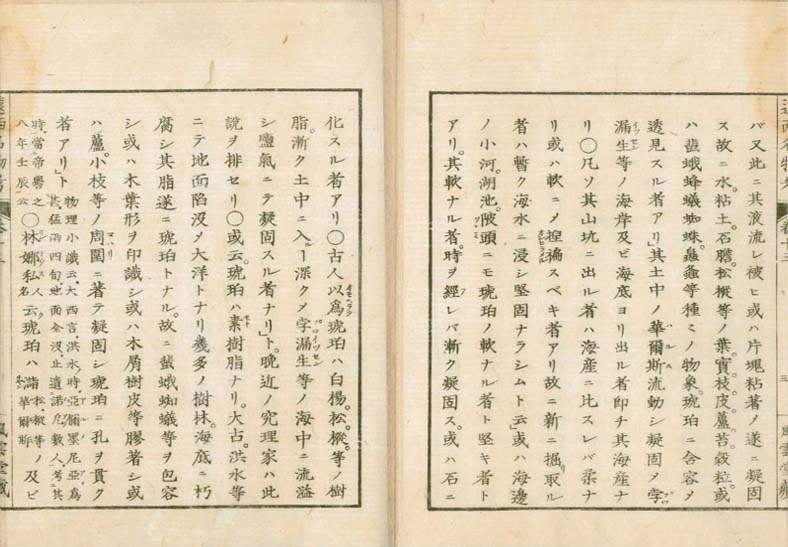 バ又此ニ其液流レ被ヒ或ハ片塊粘著メ遂ニ凝固
ス故ニ水。粘土。石膽。松樅等ノ葉。實。枝。皮。蘆。苔。穀粒。或
ハ蜚蛾蜂蟻蜘蛛。螽蟲等種ミノ物象。琥珀ニ含容メ
透見スル者アリ」其土中ノ華爾斯流動シ凝固メ孛
漏生等ノ海岸及ビ海底ヨリ出ル者即チ其海産ナ
リ〇凡ソ其山坑ニ出ル者ハ海産ニ比スレバ柔ナ
リ或ハ軟ニメ揑褊スベキ者アリ故ニ新ニ掘リ取ル
者ハ暫ク海水ニ浸シ堅固ナラシムト云或ハ海邊
ノ小河。湖池。陂頭ニモ琥珀ノ軟ナル者ト堅キ者ト
アリ。其軟ナル者。時ヲ經レバ漸ク凝固ス。或ハ石ニ
遠西名物考 卷十三 三 風雲堂藏
化スル者アリ〇古人以爲琥珀ハ白楊。松。樅等ノ樹
脂。漸ク土中ニ入ー深クメ孛漏生等ノ海中ニ流溢
シ鹽氣ニテ凝固スル者ナリ」ト。晩近ノ究理家ハ此
説ヲ排セリ〇或云。琥珀ハ素樹脂ナリ。大古。洪水等
ニテ地面陷沒メ大洋トナリ幾多ノ樹林。海底ニ朽
腐シ其脂遂ニ琥珀トナル。故ニ蜚蛾蜘蟻等ヲ包容
シ或ハ木葉形ヲ印識シ或ハ木屑樹皮等膠著シ或
ハ蘆。小枝等ノ周圍ニ著テ凝固シ琥珀ニ孔ヲ貫ク
者アリ」ト 物理小識云大西言洪水時亞爾墨尼亞爲
甚。猛雨四旬。地面全沒。止遺諾厄數人。考其
時。當帝嚳之
八年壬辰云 〇林娜私人名云琥珀ハ滿華爾斯松樅等ノ及ビ